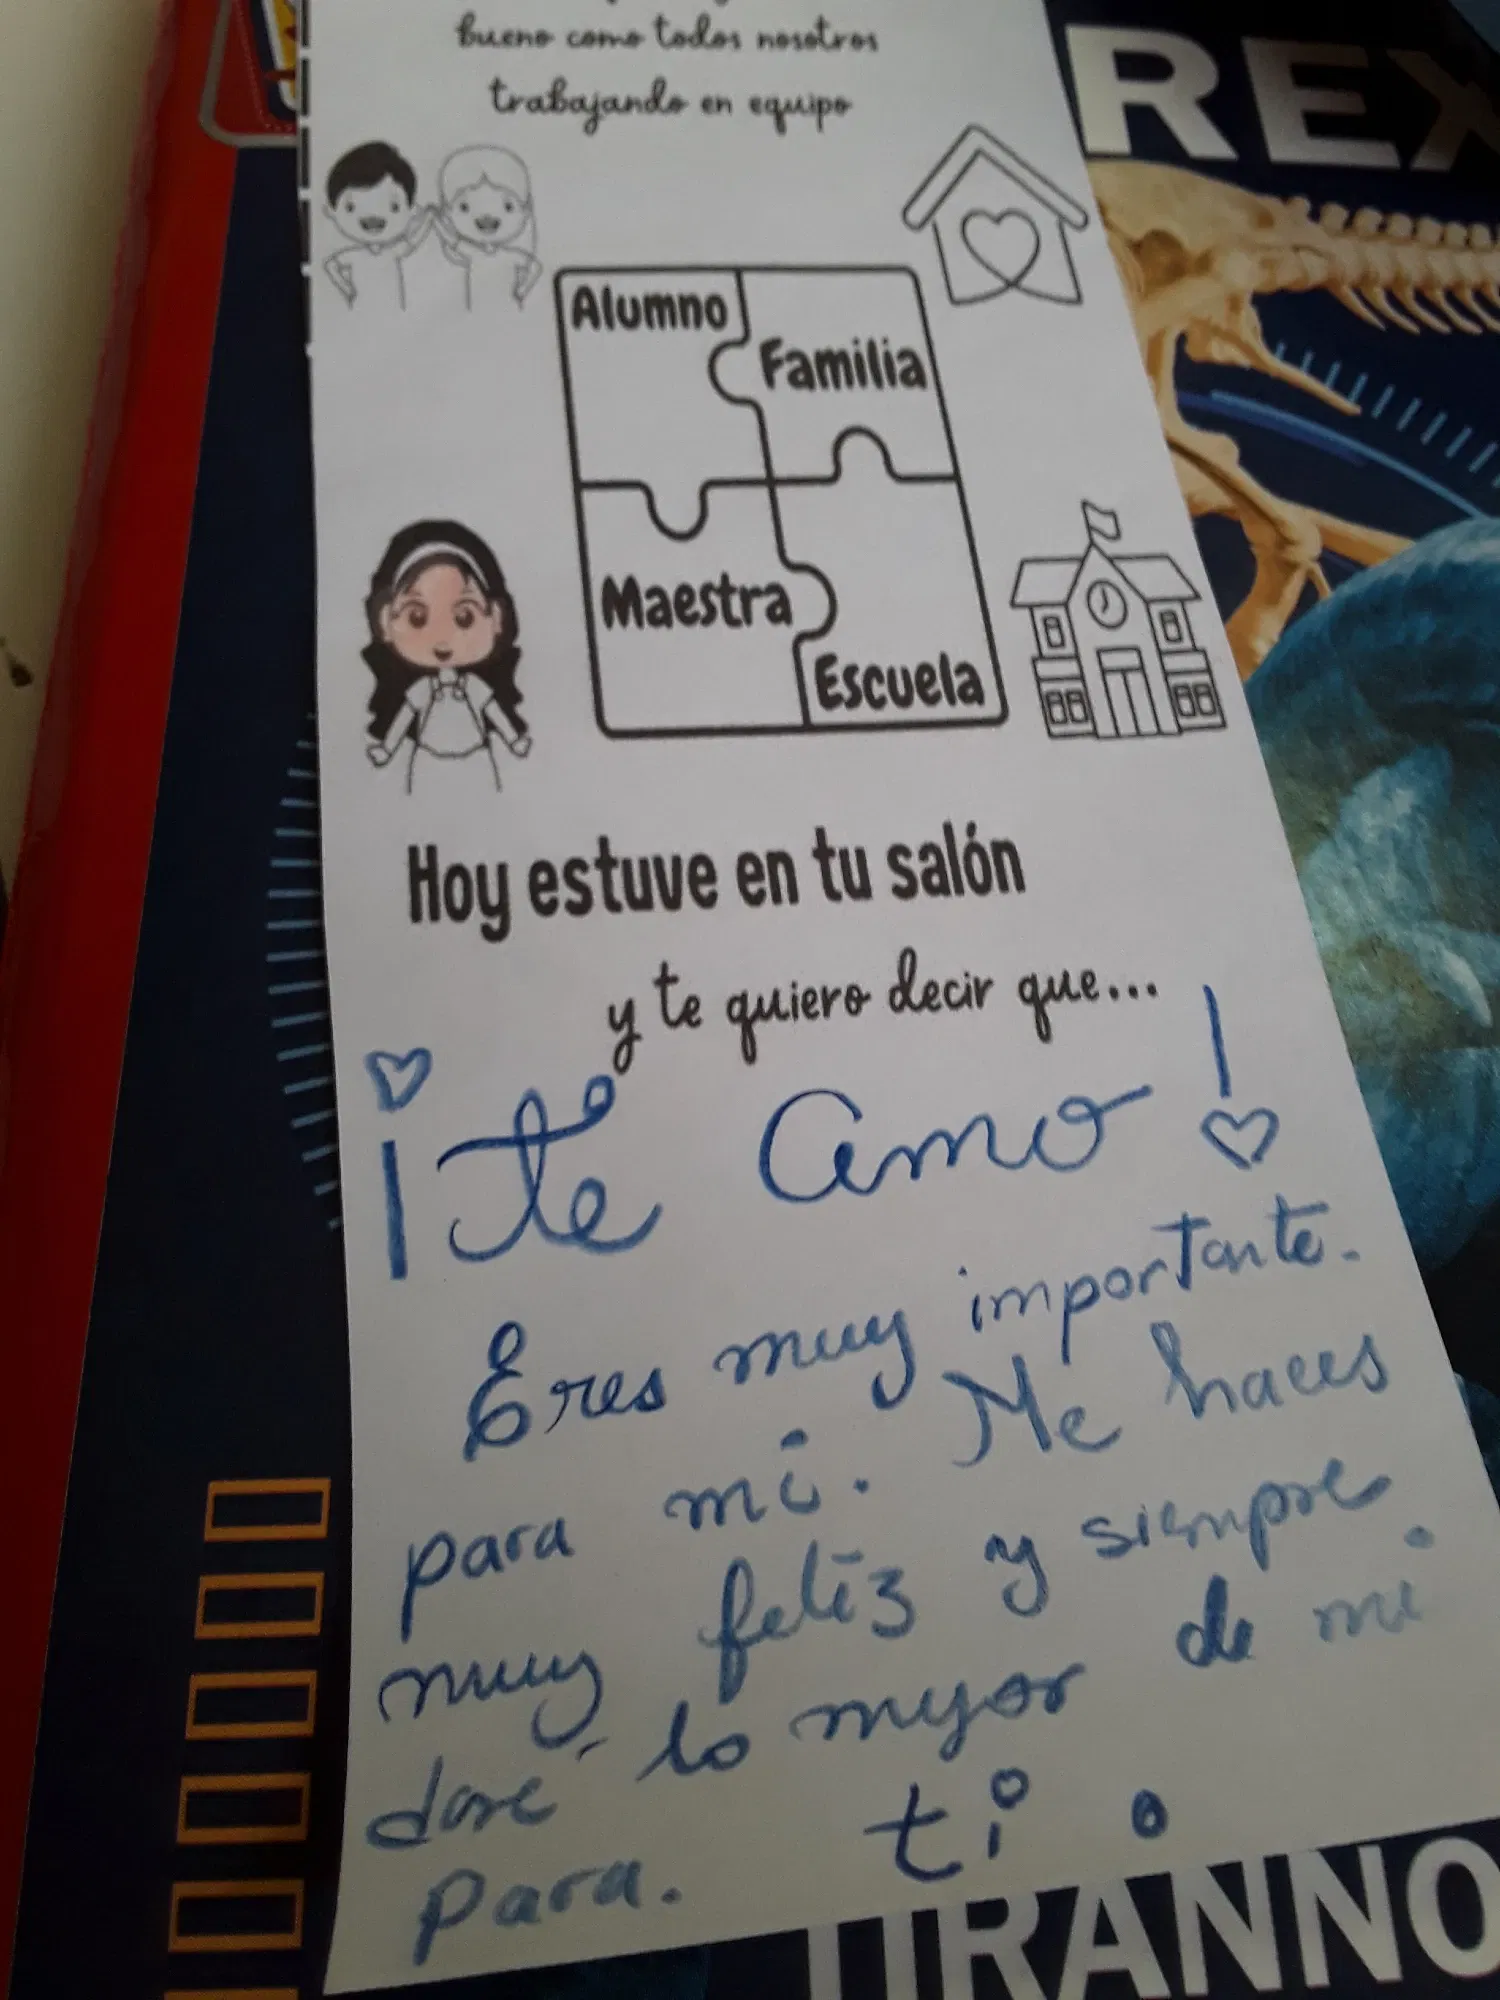 bueno como todos nosotros
trabajando en equipo
REX
Alumno
Familia
Maestra
Escuela
Hoy estuve en tu salón
y te quiero decir que...
¡te amo!
Eres muy importante.
para mi. Me haces
muy feliz y siempre
daré lo myor de mi
para. ti.
TIRANNO